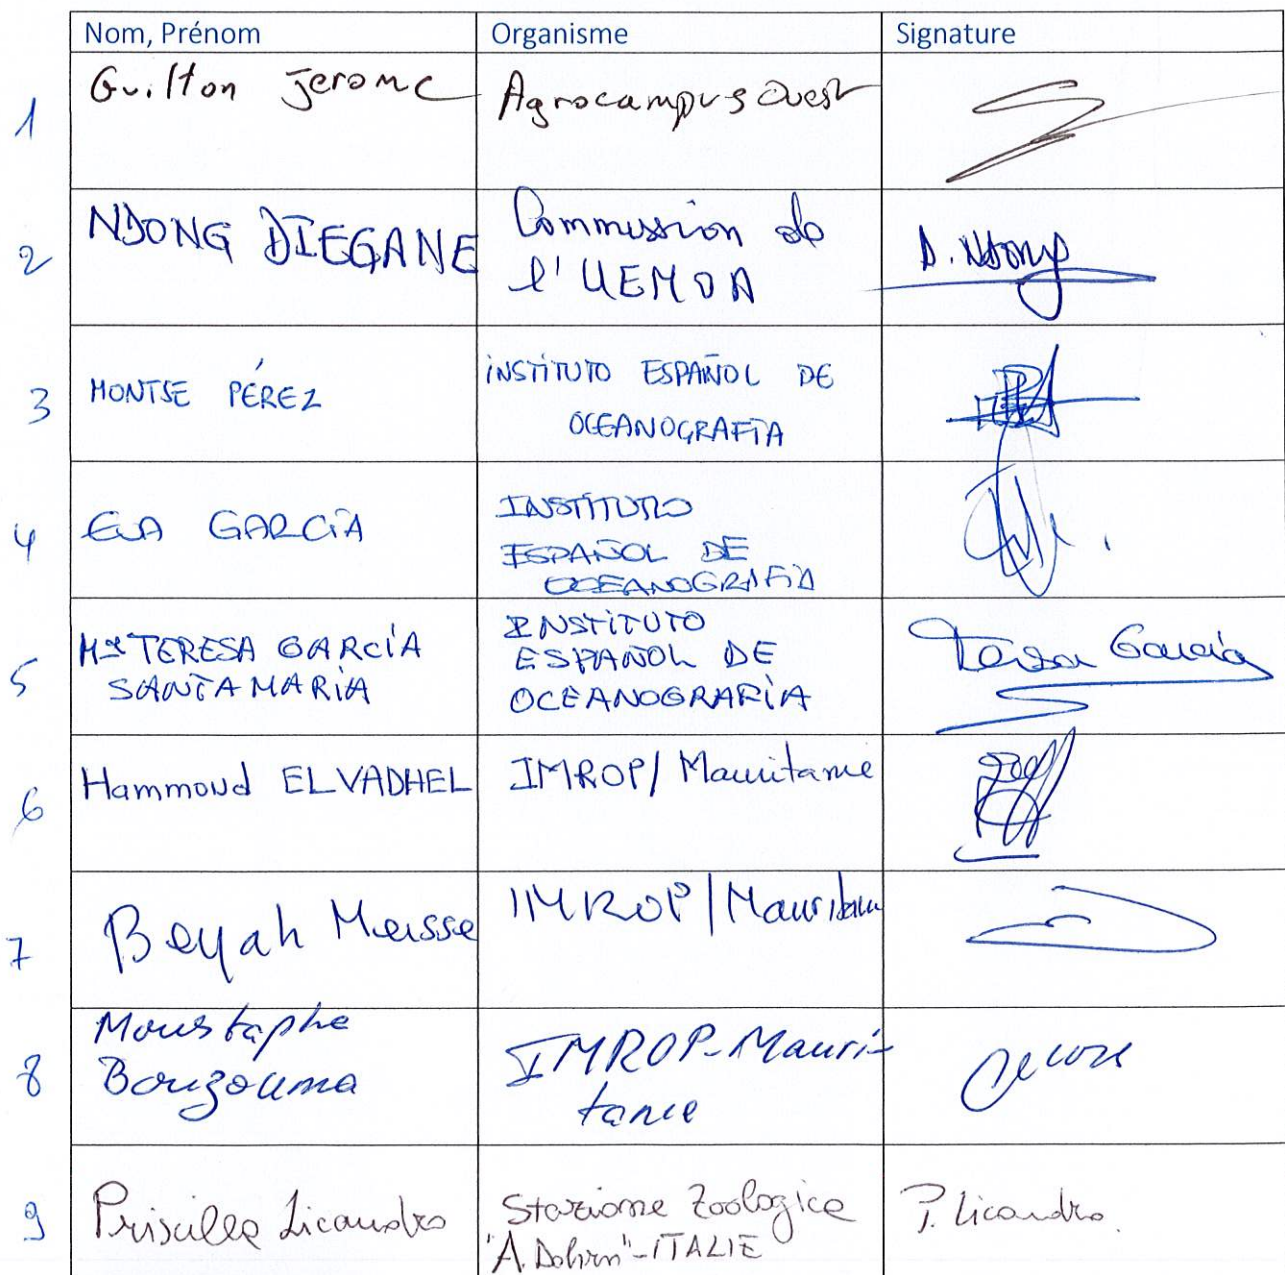 Nom, Prénom Organisme Signature
1 Guitton Jerome Agrocampus Ouest
2 NDONG DIEGANE Commission de
l'UEMOA D. Ndong
3 MONTSE PÉREZ INSTITUTO ESPAÑOL DE
OCEANOGRAFIA
4 EVA GARCÍA INSTITUTO
ESPAÑOL DE
OCEANOGRAFIA
5 Mª TERESA GARCÍA
SANTAMARÍA INSTITUTO
ESPAÑOL DE
OCEANOGRAFÍA Teresa García
6 Hammoud EL VADHEL IMROP/ Mauritanie
7 Beyah Meisse IMROP/Mauritanie
8 Moustapha
Bouzouma IMROP-Mauri-
tanie
9 Priscilla Licandro Stazione Zoologica
"A. Dohrn"-ITALIE P. Licandro.